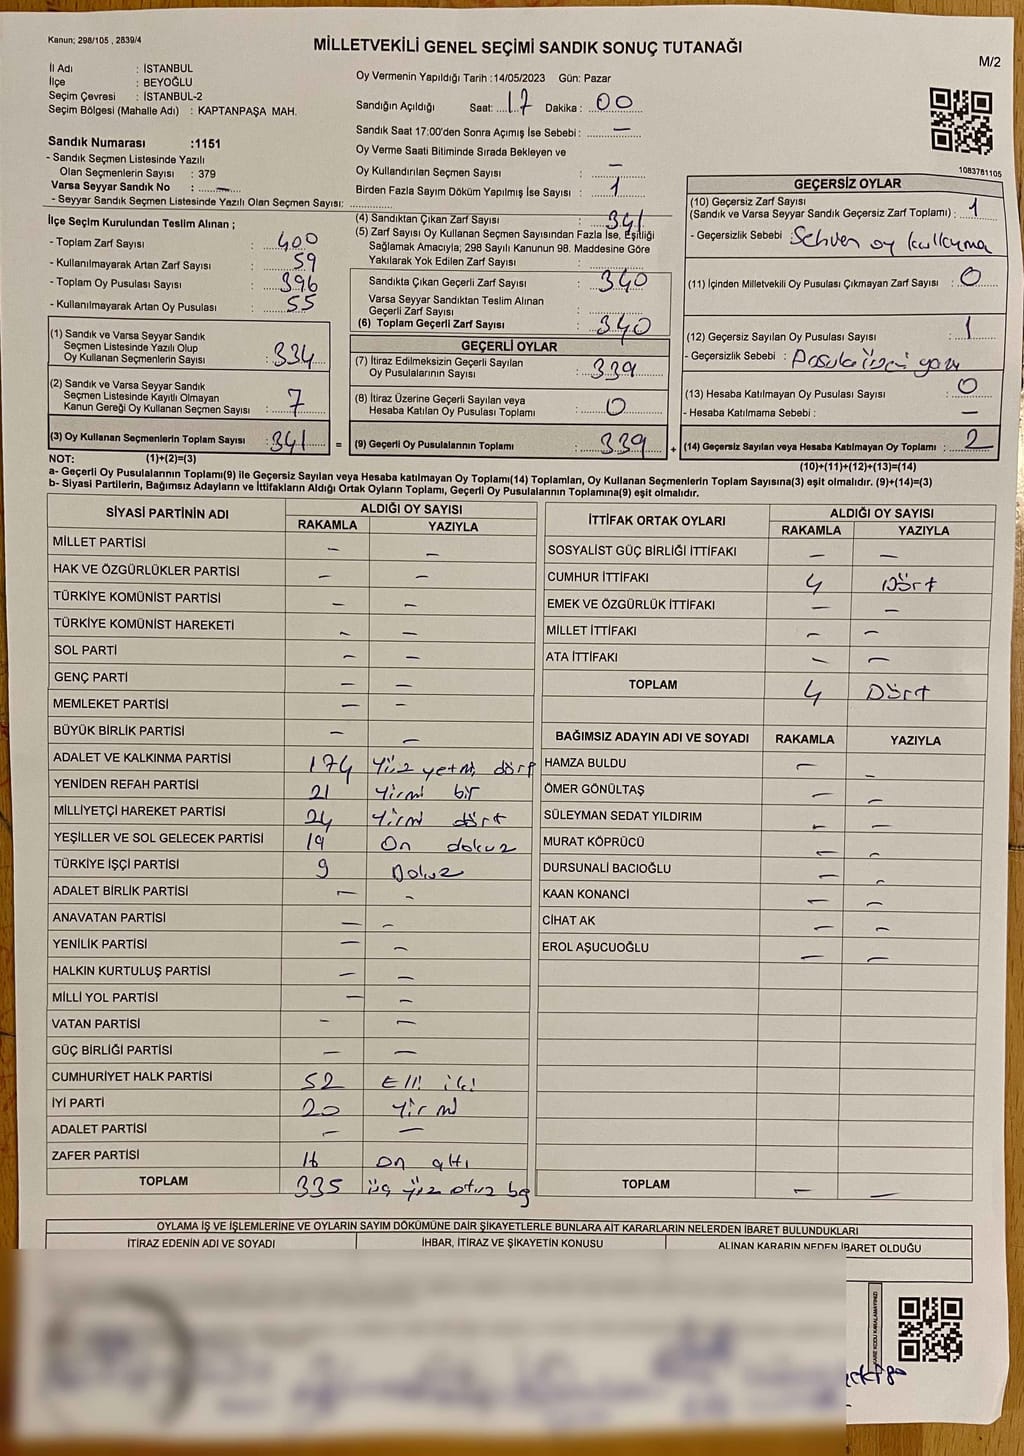 Kanun; 298/105 , 2839/4
MİLLETVEKİLİ GENEL SEÇİMİ SANDIK SONUÇ TUTANAĞI
M/2
İl Adı : İSTANBUL
İlçe : BEYOĞLU
Seçim Çevresi : İSTANBUL-2
Seçim Bölgesi (Mahalle Adı) : KAPTANPAŞA MAH.
Oy Vermenin Yapıldığı Tarih :14/05/2023 Gün: Pazar
Sandığın Açıldığı Saat: 17 Dakika : 00
Sandık Saat 17:00'den Sonra Açımış İse Sebebi : —
Oy Verme Saati Bitiminde Sırada Bekleyen ve
Oy Kullandırılan Seçmen Sayısı : —
Birden Fazla Sayım Döküm Yapılmış İse Sayısı : 1
Sandık Numarası :1151
- Sandık Seçmen Listesinde Yazılı
Olan Seçmenlerin Sayısı : 379
Varsa Seyyar Sandık No : —
- Seyyar Sandık Seçmen Listesinde Yazılı Olan Seçmen Sayısı:
1083781105
İlçe Seçim Kurulundan Teslim Alınan ;
- Toplam Zarf Sayısı : 400
- Kullanılmayarak Artan Zarf Sayısı : 59
- Toplam Oy Pusulası Sayısı : 396
- Kullanılmayarak Artan Oy Pusulası : 55
(1) Sandık ve Varsa Seyyar Sandık
Seçmen Listesinde Yazılı Olup
Oy Kullanan Seçmenlerin Sayısı : 334
(2) Sandık ve Varsa Seyyar Sandık
Seçmen Listesinde Kayıtlı Olmayan
Kanun Gereği Oy Kullanan Seçmen Sayısı : 7
(3) Oy Kullanan Seçmenlerin Toplam Sayısı : 341
(4) Sandıktan Çıkan Zarf Sayısı : 341
(5) Zarf Sayısı Oy Kullanan Seçmen Sayısından Fazla İse, Eşitliği
Sağlamak Amacıyla; 298 Sayılı Kanunun 98. Maddesine Göre
Yakılarak Yok Edilen Zarf Sayısı :
Sandıkta Çıkan Geçerli Zarf Sayısı : 340
Varsa Seyyar Sandıktan Teslim Alınan
Geçerli Zarf Sayısı :
(6) Toplam Geçerli Zarf Sayısı : 340
GEÇERLİ OYLAR
(7) İtiraz Edilmeksizin Geçerli Sayılan
Oy Pusulalarının Sayısı : 339
(8) İtiraz Üzerine Geçerli Sayılan veya
Hesaba Katılan Oy Pusulası Toplamı : 0
= (9) Geçerli Oy Pusulalarının Toplamı : 339
GEÇERSİZ OYLAR
(10) Geçersiz Zarf Sayısı
(Sandık ve Varsa Seyyar Sandık Geçersiz Zarf Toplamı) : 1
- Geçersizlik Sebebi : Sehven oy kullanma
(11) İçinden Milletvekili Oy Pusulası Çıkmayan Zarf Sayısı : 0
(12) Geçersiz Sayılan Oy Pusulası Sayısı : 1
- Geçersizlik Sebebi : Pusula üzeri yazı
(13) Hesaba Katılmayan Oy Pusulası Sayısı : 0
- Hesaba Katılmama Sebebi : —
+ (14) Geçersiz Sayılan veya Hesaba Katılmayan Oy Toplamı : 2
NOT: (1)+(2)=(3)
(10)+(11)+(12)+(13)=(14)
a- Geçerli Oy Pusulalarının Toplamı(9) ile Geçersiz Sayılan veya Hesaba katılmayan Oy Toplamı(14) Toplamları, Oy Kullanan Seçmenlerin Toplam Sayısına(3) eşit olmalıdır. (9)+(14)=(3)
b- Siyasi Partilerin, Bağımsız Adayların ve İttifakların Aldığı Ortak Oyların Toplamı, Geçerli Oy Pusulalarının Toplamına(9) eşit olmalıdır.
SİYASİ PARTİNİN ADI ALDIĞI OY SAYISI
RAKAMLA YAZIYLA
MİLLET PARTİSİ — —
HAK VE ÖZGÜRLÜKLER PARTİSİ — —
TÜRKİYE KOMÜNİST PARTİSİ — —
TÜRKİYE KOMÜNİST HAREKETİ — —
SOL PARTİ — —
GENÇ PARTİ — —
MEMLEKET PARTİSİ — —
BÜYÜK BİRLİK PARTİSİ — —
ADALET VE KALKINMA PARTİSİ 174 Yüz yetmi, dört
YENİDEN REFAH PARTİSİ 21 Yirmi bir
MİLLİYETÇİ HAREKET PARTİSİ 24 Yirmi dört
YEŞİLLER VE SOL GELECEK PARTİSİ 19 On dokuz
TÜRKİYE İŞÇİ PARTİSİ 9 Dokuz
ADALET BİRLİK PARTİSİ — —
ANAVATAN PARTİSİ — —
YENİLİK PARTİSİ — —
HALKIN KURTULUŞ PARTİSİ — —
MİLLİ YOL PARTİSİ — —
VATAN PARTİSİ — —
GÜÇ BİRLİĞİ PARTİSİ — —
CUMHURİYET HALK PARTİSİ 52 Elli iki
İYİ PARTİ 20 Yirmi
ADALET PARTİSİ — —
ZAFER PARTİSİ 16 On altı
TOPLAM 335 üç yüz otuz beş
İTTİFAK ORTAK OYLARI ALDIĞI OY SAYISI
RAKAMLA YAZIYLA
SOSYALİST GÜÇ BİRLİĞİ İTTİFAKI — —
CUMHUR İTTİFAKI 4 Dört
EMEK VE ÖZGÜRLÜK İTTİFAKI — —
MİLLET İTTİFAKI — —
ATA İTTİFAKI — —
TOPLAM 4 Dört
BAĞIMSIZ ADAYIN ADI VE SOYADI RAKAMLA YAZIYLA
HAMZA BULDU — —
ÖMER GÖNÜLTAŞ — —
SÜLEYMAN SEDAT YILDIRIM — —
MURAT KÖPRÜCÜ — —
DURSUNALİ BACIOĞLU — —
KAAN KONANCİ — —
CİHAT AK — —
EROL AŞUCUOĞLU — —
TOPLAM — —
OYLAMA İŞ VE İŞLEMLERİNE VE OYLARIN SAYIM DÖKÜMÜNE DAİR ŞİKAYETLERLE BUNLARA AİT KARARLARIN NELERDEN İBARET BULUNDUKLARI
İTİRAZ EDENİN ADI VE SOYADI İHBAR, İTİRAZ VE ŞİKAYETİN KONUSU ALINAN KARARIN NEDEN İBARET OLDUĞU
KARE KODU KARALAMAYINIZ!